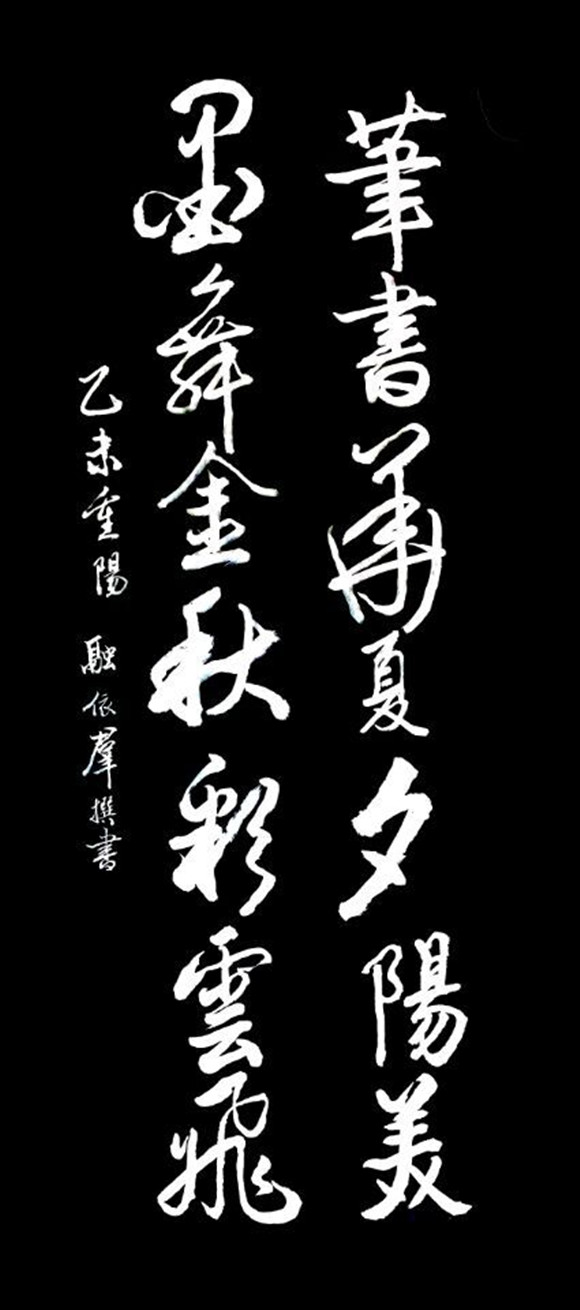 筆書華夏夕陽美
墨舞金秋彩雲飛
乙未重陽 融依羣撰書